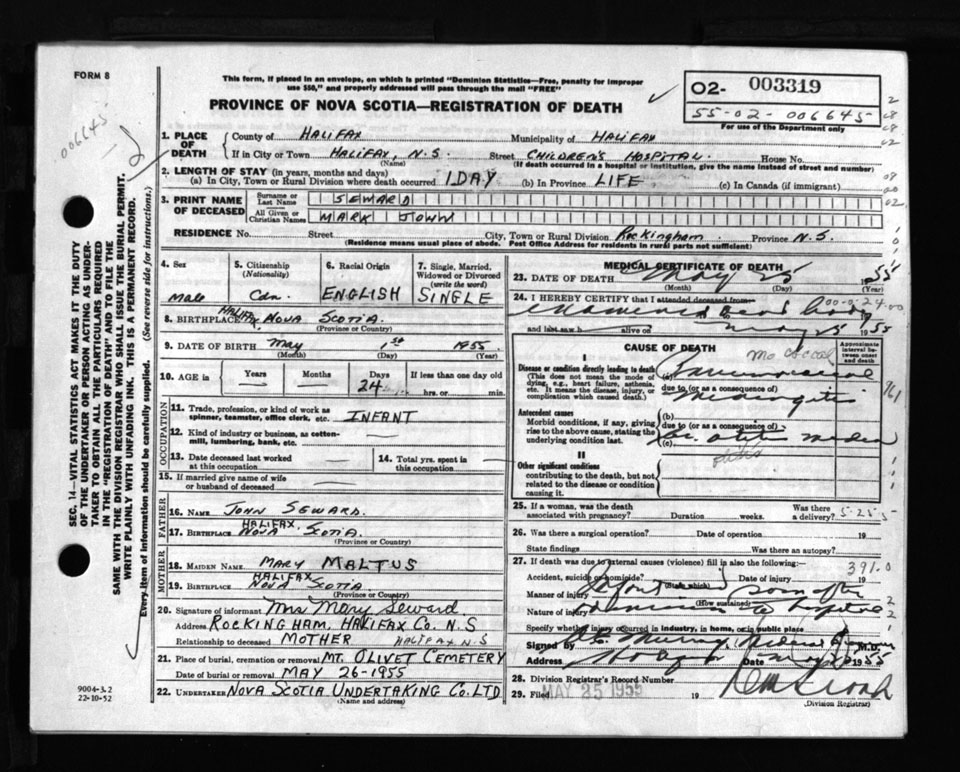 FORM 8
This form, if placed in an envelope, on which is printed "Dominion Statistics—Free, penalty for improper
use $50," and properly addressed will pass through the mail "FREE"
PROVINCE OF NOVA SCOTIA—REGISTRATION OF DEATH
02- 003319
55-02-006645
For use of the Department only
006645
SEC. 14—VITAL STATISTICS ACT MAKES IT THE DUTY
OF THE UNDERTAKER OR PERSON ACTING AS UNDER-
TAKER TO OBTAIN ALL THE PARTICULARS REQUIRED
IN THE "REGISTRATION OF DEATH" AND TO FILE THE
SAME WITH THE DIVISION REGISTRAR WHO SHALL ISSUE THE BURIAL PERMIT.
WRITE PLAINLY WITH UNFADING INK. THIS IS A PERMANENT RECORD.
Every item of information should be carefully supplied. (See reverse side for instructions.)
1. PLACE OF DEATH
County of HALIFAX Municipality of HALIFAX
If in City or Town HALIFAX, N.S. Street CHILDREN'S HOSPITAL House No.
(Name) (If death occurred in a hospital or institution, give the name instead of street and number)
2. LENGTH OF STAY (in years, months and days)
(a) In City, Town or Rural Division where death occurred 1 DAY (b) In Province LIFE (c) In Canada (if immigrant)
3. PRINT NAME OF DECEASED
Surname or Last Name SEWARD
All Given or Christian Names MARK JOHN
RESIDENCE No. Street City, Town or Rural Division Rockingham Province N.S.
(Residence means usual place of abode. Post Office Address for residents in rural parts not sufficient)
4. Sex Male
5. Citizenship (Nationality) Cdn.
6. Racial Origin ENGLISH
7. Single, Married, Widowed or Divorced (write the word) SINGLE
8. BIRTHPLACE HALIFAX NOVA SCOTIA
(Province or Country)
9. DATE OF BIRTH May 1st 1955
(Month) (Day) (Year)
10. AGE in Years Months Days 24 If less than one day
hrs. or min.
OCCUPATION
11. Trade, profession, or kind of work as
spinner, teamster, office clerk, etc. INFANT
12. Kind of industry or business, as cotton-
mill, lumbering, bank, etc.
13. Date deceased last worked
at this occupation
14. Total yrs. spent in
this occupation
15. If married give name of wife
or husband of deceased
FATHER
16. NAME JOHN SEWARD.
17. BIRTHPLACE HALIFAX. NOVA SCOTIA.
(Province or Country)
MOTHER
18. MAIDEN NAME MARY MALTUS
19. BIRTHPLACE HALIFAX NOVA SCOTIA
(Province or Country)
20. Signature of informant Mrs Mary Seward.
Address ROCKINGHAM, HALIFAX Co. N.S
Relationship to deceased MOTHER HALIFAX N.S
21. Place of burial, cremation or removal MT. OLIVET CEMETERY
Date of burial or removal MAY 26-1955
22. UNDERTAKER NOVA SCOTIA UNDERTAKING CO. LTD
(Name and address)
9004-3.2
22-10-52
MEDICAL CERTIFICATE OF DEATH
23. DATE OF DEATH May 25 1955
(Month) (Day) (Year)
24. I HEREBY CERTIFY that I attended deceased from
Examined dead body
and last saw h alive on May 25 1955
CAUSE OF DEATH
Approximate interval between onset and death
I
Disease or condition directly leading to death
(This does not mean the mode of
dying, e.g., heart failure, asthenia,
etc. It means the disease, injury, or
complication which caused death.)
(a)
due to (or as a consequence of)
Meningitis
Antecedent causes
Morbid conditions, if any, giving
rise to the above cause, stating the
underlying condition last.
(b)
due to (or as a consequence of)
(c) otitis media
II
Other significant conditions
contributing to the death, but not
related to the disease or condition
causing it.
25. If a woman, was the death
associated with pregnancy? Duration weeks. Was there
a delivery?
26. Was there a surgical operation? Date of operation 19
State findings Was there an autopsy?
27. If death was due to external causes (violence) fill in also the following:
391.0
Accident, suicide or homicide? (State which) Date of injury 19
Manner of injury
(How sustained)
Nature of injury
Specify whether injury occurred in industry, in home, or in public place
Signed by M.D.
Address Date 1955
28. Division Registrar's Record Number
29. Filed MAY 25 1955 19
(Division Registrar)